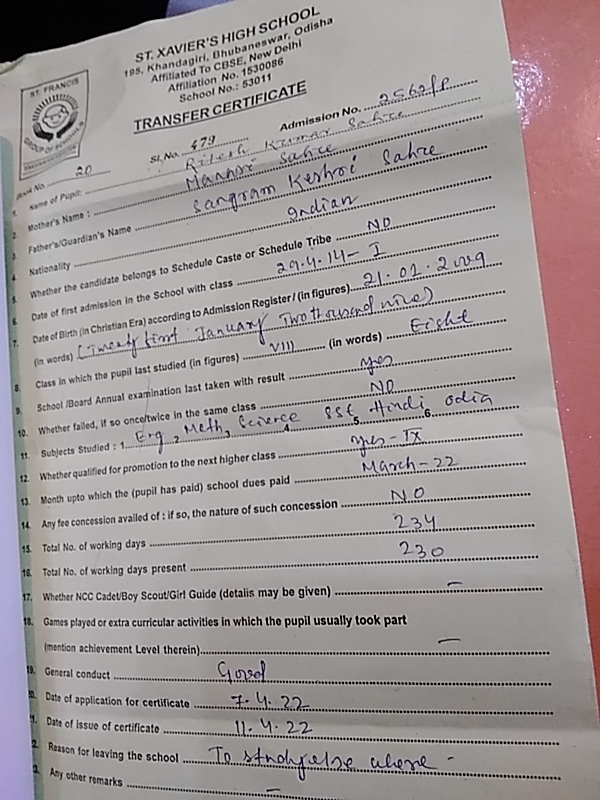 ST. XAVIER'S HIGH SCHOOL
195, Khandagiri, Bhubaneswar, Odisha
Affiliated To CBSE, New Delhi
Affiliation No. 1530086
School No.: 53011
ST. FRANCIS
GROUP OF SCHOOLS
TRANSFER CERTIFICATE
Book No. 20 Sl. No. 479 Admission No.
1. Name of Pupil: Ritesh Kumar Sahoo
2. Mother's Name : Sahoo
3. Father's/Guardian's Name Sangram Keshri Sahoo
4. Nationality Indian
5. Whether the candidate belongs to Schedule Caste or Schedule Tribe NO
6. Date of first admission in the School with class 29.4.14 - I
7. Date of Birth (in Christian Era) according to Admission Register/ (in figures) 21.01.2009
(in words) (Twenty first January Two thousand nine)
8. Class in which the pupil last studied (in figures) VIII (in words) Eight
9. School /Board Annual examination last taken with result yes
10. Whether failed, if so once/twice in the same class NO
11. Subjects Studied : 1. Eng 2. Math 3. Science 4. SSt 5. Hindi 6. odia
12. Whether qualified for promotion to the next higher class yes - IX
13. Month upto which the (pupil has paid) school dues paid March - 22
14. Any fee concession availed of : if so, the nature of such concession NO
15. Total No. of working days 234
16. Total No. of working days present 230
17. Whether NCC Cadet/Boy Scout/Girl Guide (detalis may be given) —
18. Games played or extra curricular activities in which the pupil usually took part
(mention achievement Level therein) —
19. General conduct Good
20. Date of application for certificate 7.4.22
21. Date of issue of certificate 11.4.22
22. Reason for leaving the school To study else where -
23. Any other remarks —